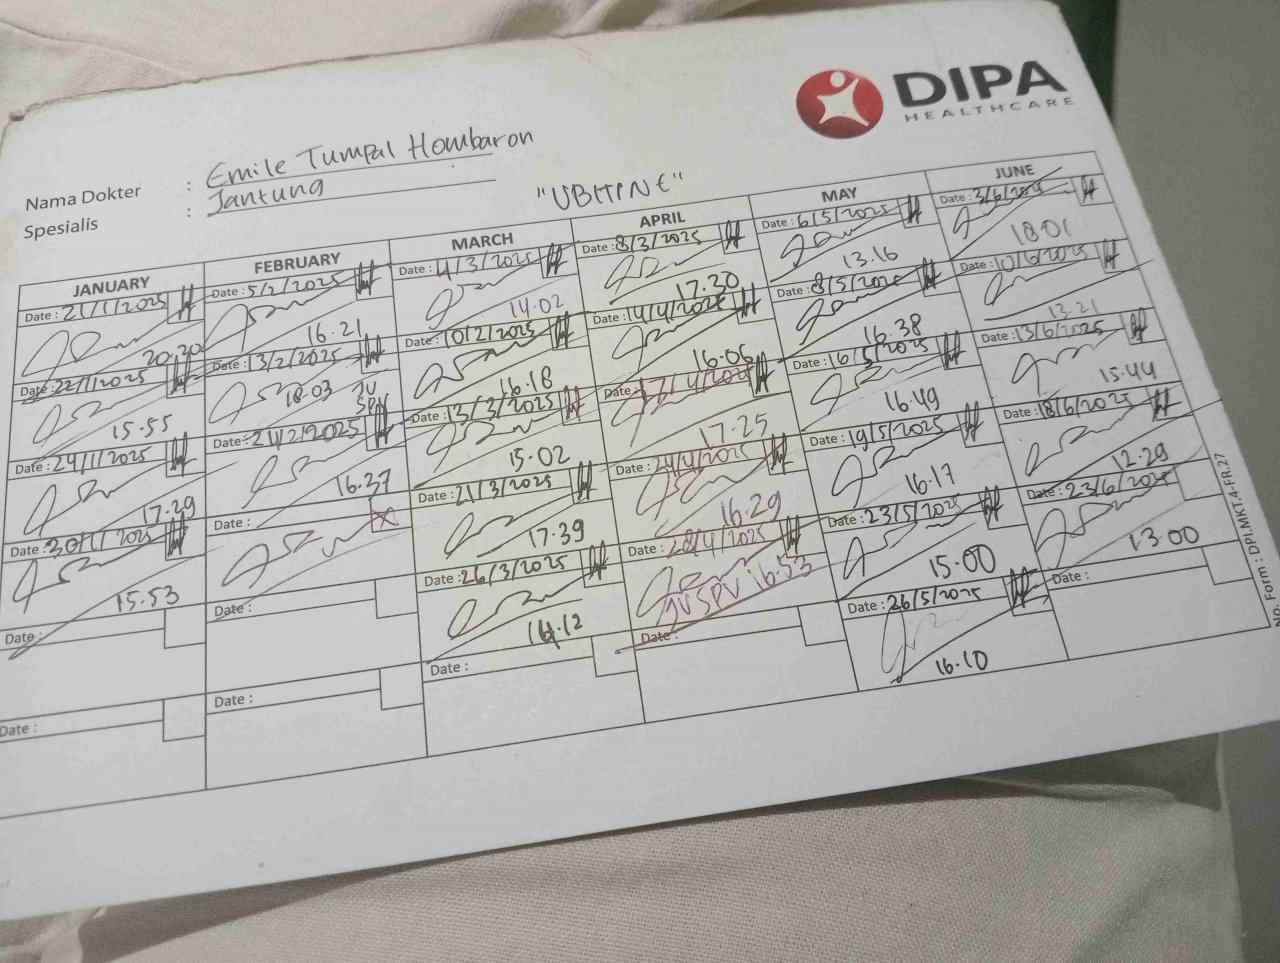 DIPA
HEALTHCARE
Nama Dokter : Emile Tumpal Hombaron
Spesialis : Jantung
"UBHINE"
JANUARY
Date : 21/1/2025
20.20
Date : 22/1/2025
15.55
Date : 24/1/2025
17.29
Date : 30/1/2025
15.53
Date :
Date :
FEBRUARY
Date : 5/2/2025
16.21
Date : 13/2/2025
18.03
JV
SPV
Date : 21/2/2025
16.37
Date :
Date :
Date :
MARCH
Date : 4/3/2025
14.02
Date : 10/2/2025
16.18
Date : 13/3/2025
15.02
Date : 21/3/2025
17.39
Date : 26/3/2025
16.12
Date :
APRIL
Date : 8/3/2025
17.30
Date : 14/4/2025
16.06
Date : 17/4/2025
17.25
Date : 24/4/2025
16.29
Date : 28/4/2025
JV SPV 16.53
Date :
MAY
Date : 6/5/2025
13.16
Date : 8/5/2025
16.38
Date : 16/5/2025
16.49
Date : 19/5/2025
16.17
Date : 23/5/2025
15.00
Date : 26/5/2025
16.10
JUNE
Date : 3/6/2025
18.01
Date : 10/6/2025
13.21
Date : 13/6/2025
15.44
Date : 18/6/2025
12.29
Date : 23/6/2025
13.00
Date :
No. Form : DPI.MKT.4.FR.27